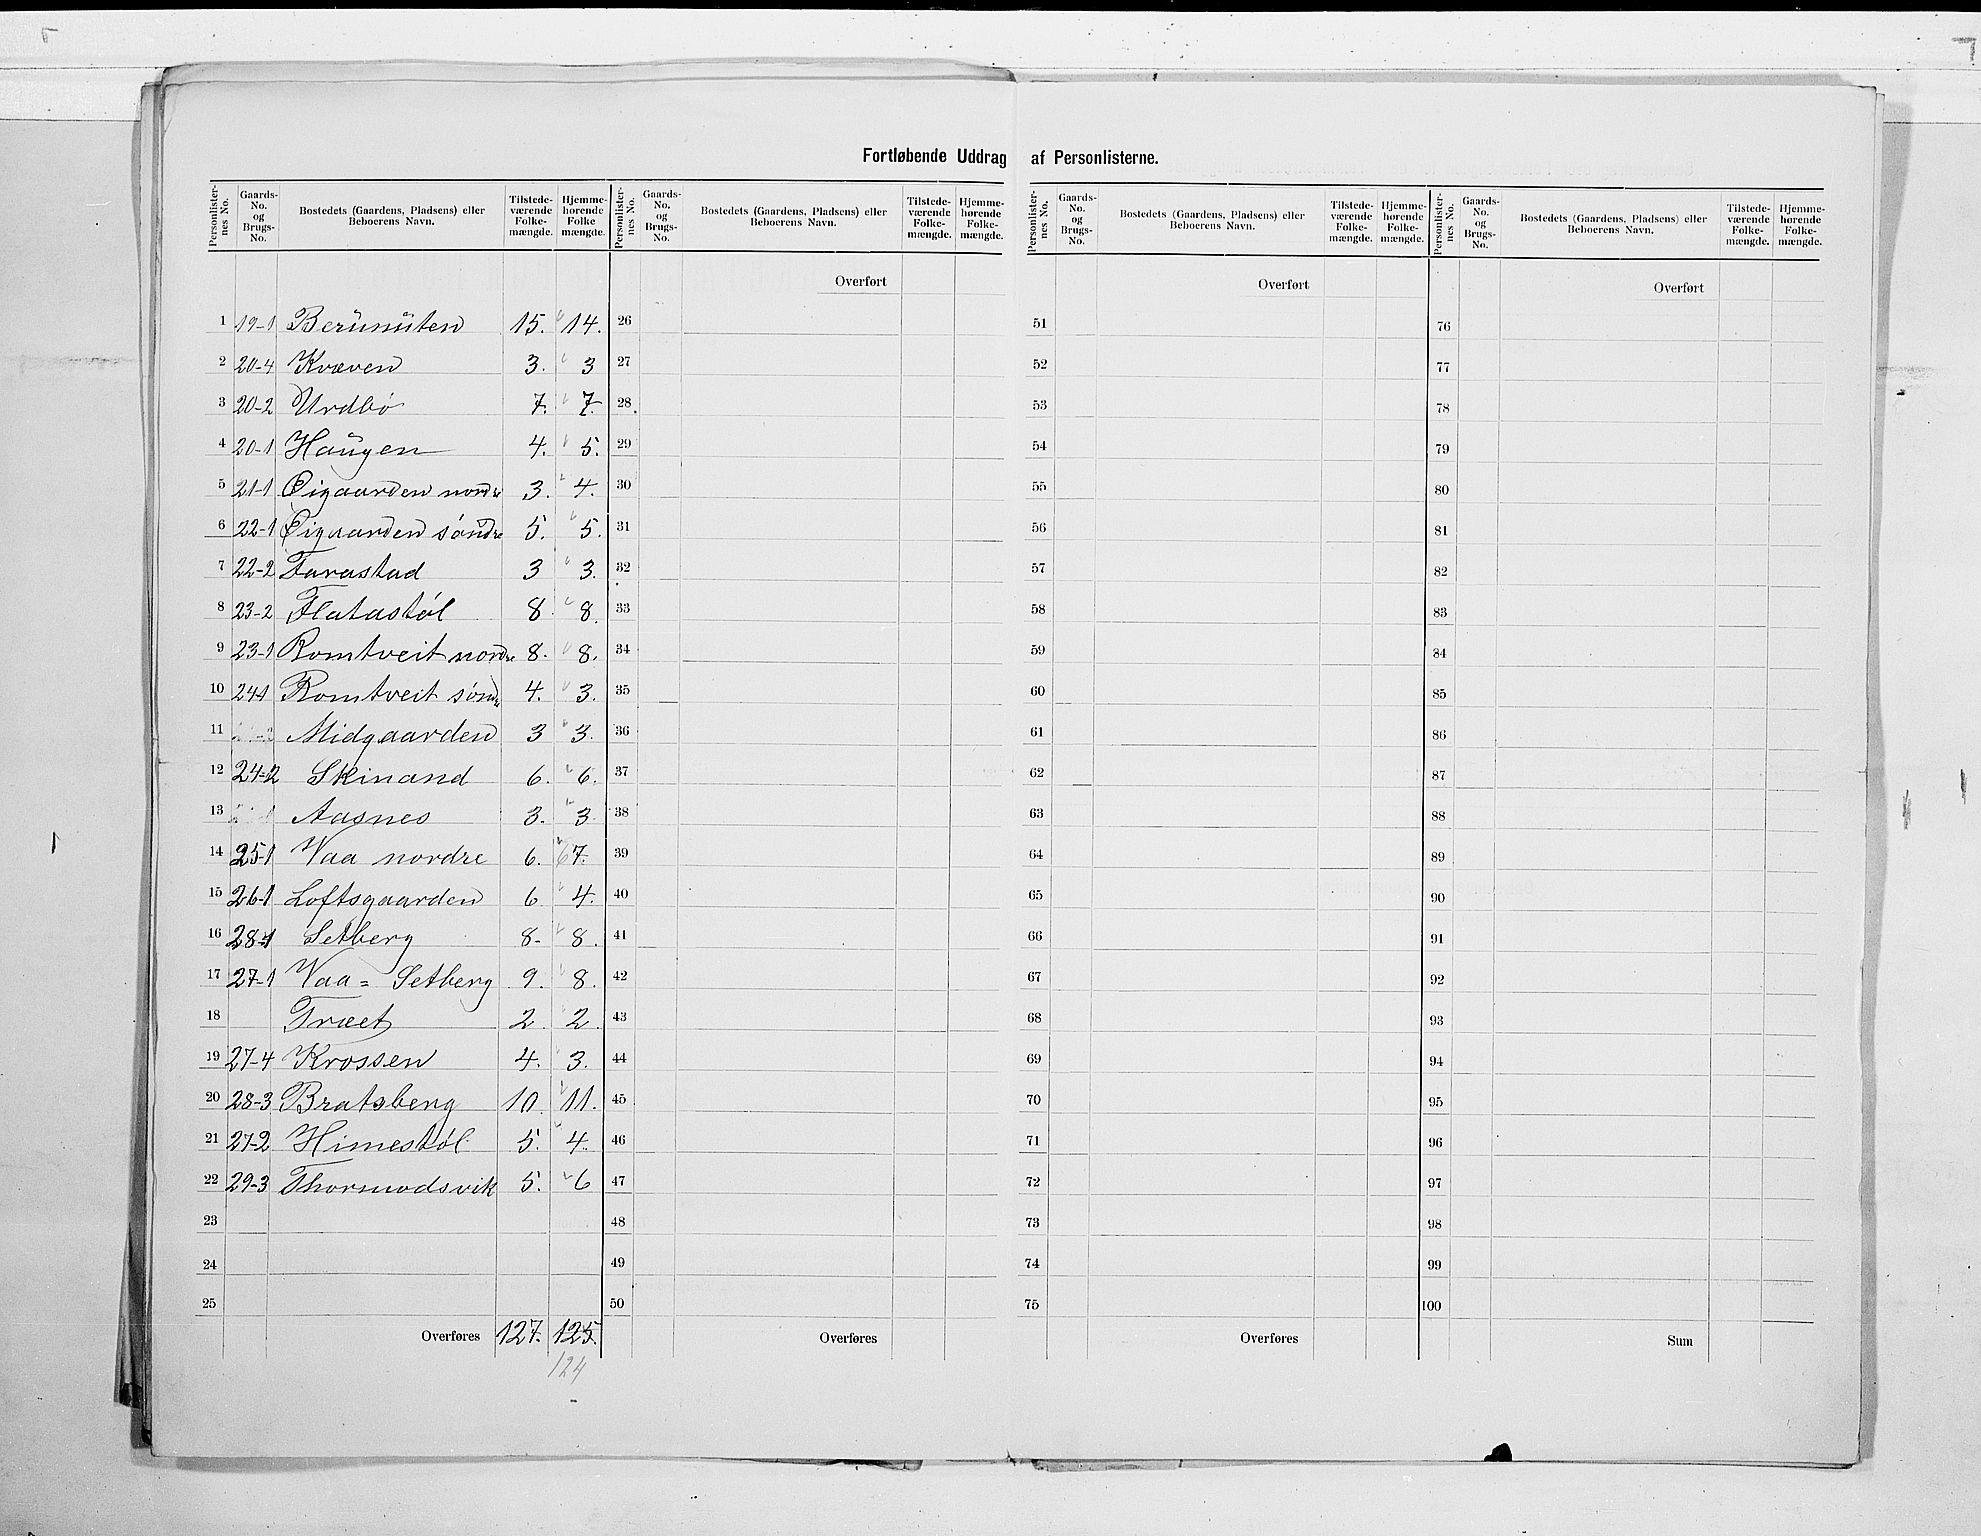 Fortløbende Uddrag af Personlisterne.
Personlister-nes No. | Gaards-No. og Brugs-No. | Bostedets (Gaardens, Pladsens) eller Beboerens Navn. | Tilstede-værende Folke-mængde. | Hjemme-hørende Folke mængde.
1 19-1 Berünüten 15. 14.
2 20-4 Kvæven 3. 3
3 20-2 Urdbö 7. 7.
4 20-1 Haugen 4. 5.
5 21-1 Øigaarden nordre 3. 4.
6 22-1 Øigaarden söndre 5. 5.
7 22-2 Farastad 3 3.
8 23-2 Flatastøl 8. 8.
9 23-1 Romtveit nordre 8. 8.
10 24-1 Romtveit søndre 4. 3.
11 Midgaarden 3 3.
12 24-2 Skinand 6. 6.
13 Aasnes 3. 3
14 25-1 Vaa nordre 6. 7.
15 26-1 Loftsgaarden 6 4.
16 28-1 Setberg 8. 8.
17 27-1 Vaa = Setberg 9. 8.
18 Træet 2. 2.
19 27-4 Krossen 4. 3.
20 28-3 Bratsberg 10. 11.
21 27-2 Himestøl 5. 4.
22 29-3 Thormodsvik 5. 6
23
24
25
Overføres 127. 125.
124
Personlister-nes No. | Gaards-No. og Brugs-No. | Bostedets (Gaardens, Pladsens) eller Beboerens Navn. | Tilstede-værende Folke-mængde. | Hjemme-hørende Folke-mængde.
Overført
26
27
28
29
30
31
32
33
34
35
36
37
38
39
40
41
42
43
44
45
46
47
48
49
50
Overføres
Personlister-nes No. | Gaards-No. og Brugs-No. | Bostedets (Gaardens, Pladsens) eller Beboerens Navn. | Tilstede-værende Folke-mængde. | Hjemme-hørende Folke-mængde.
Overført
51
52
53
54
55
56
57
58
59
60
61
62
63
64
65
66
67
68
69
70
71
72
73
74
75
Overføres
Personlister-nes No. | Gaards-No. og Brugs-No. | Bostedets (Gaardens, Pladsens) eller Beboerens Navn. | Tilstede-værende Folke-mængde. | Hjemme-hørende Folke-mængde.
Overført
76
77
78
79
80
81
82
83
84
85
86
87
88
89
90
91
92
93
94
95
96
97
98
99
100
Sum